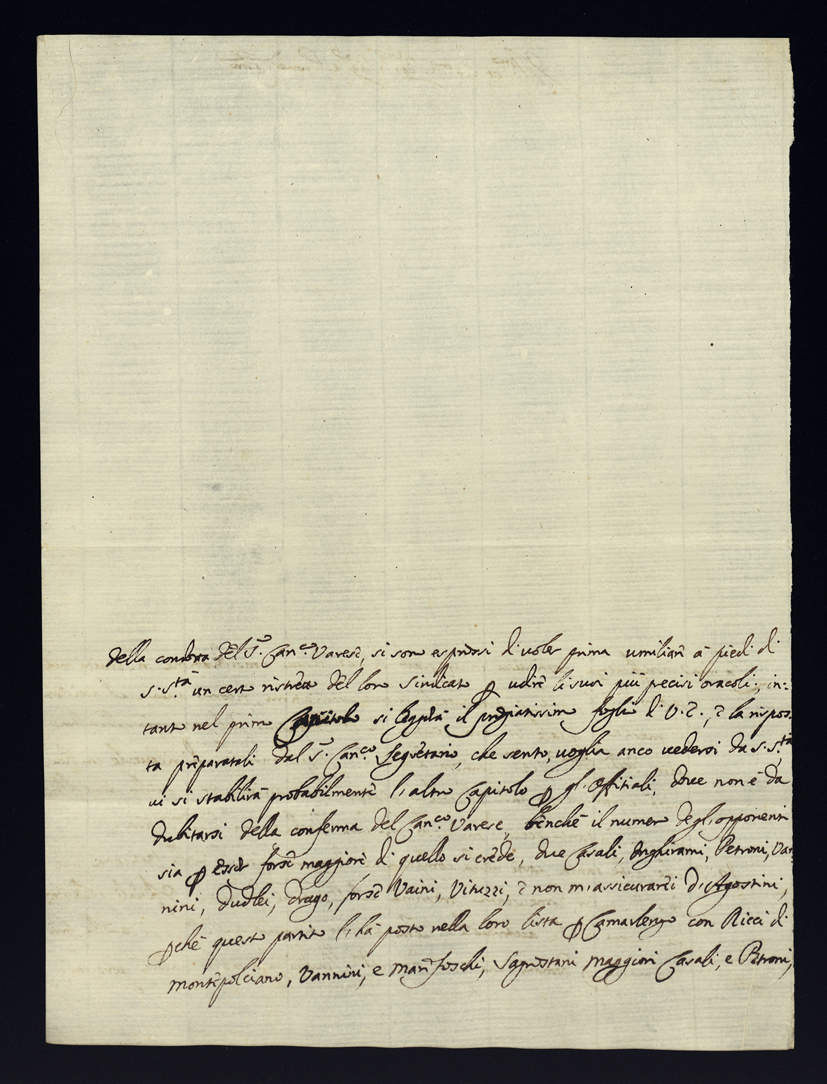 della condotta del S.r Can.co Varese, si sono espressi di voler prima umiliare a piedi di
S. S.tà un certo ristretto del loro Sindicato, p udire li suoi più precisi oracoli; in=
tanto nel primo Capitolo si leggerà il pregiatissimo foglio di V. E., e la rispos=
ta preparatali dal S.r Can.co Segretario, che sento, voglia anco vedersi da S. S.tà,
vi si stabilirà probabilmente l'altro Capitolo p gl'Offitiali, dove non è da
dubitarsi della conferma del Can.co Varese, benche il numero degl'opponenti
sia p esser forse maggiore di quello si crede, due Casali, Inghirami, Petroni, Van=
nini, Dudlei, Drago, forse Vaini, Vitozzi, e non m'assicurarei d'Agostini,
pche questo partito l'hà posto nella loro lista p Camarlengo con Ricci di
Montepolciano, Vannini, e Marefoschi, Sagrestani maggiori Casali, e Petroni,